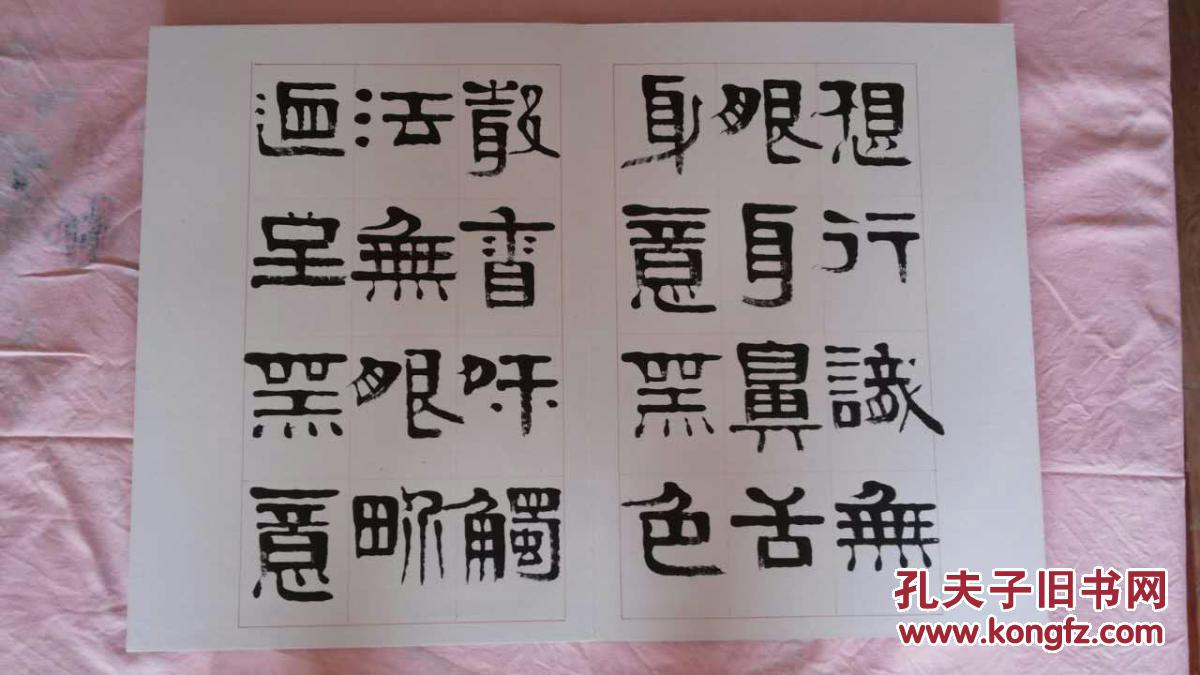 想行識無
眼耳鼻舌
身意無色
聲香味觸
法無眼畍
迺至無意
孔夫子旧书网
www.kongfz.com